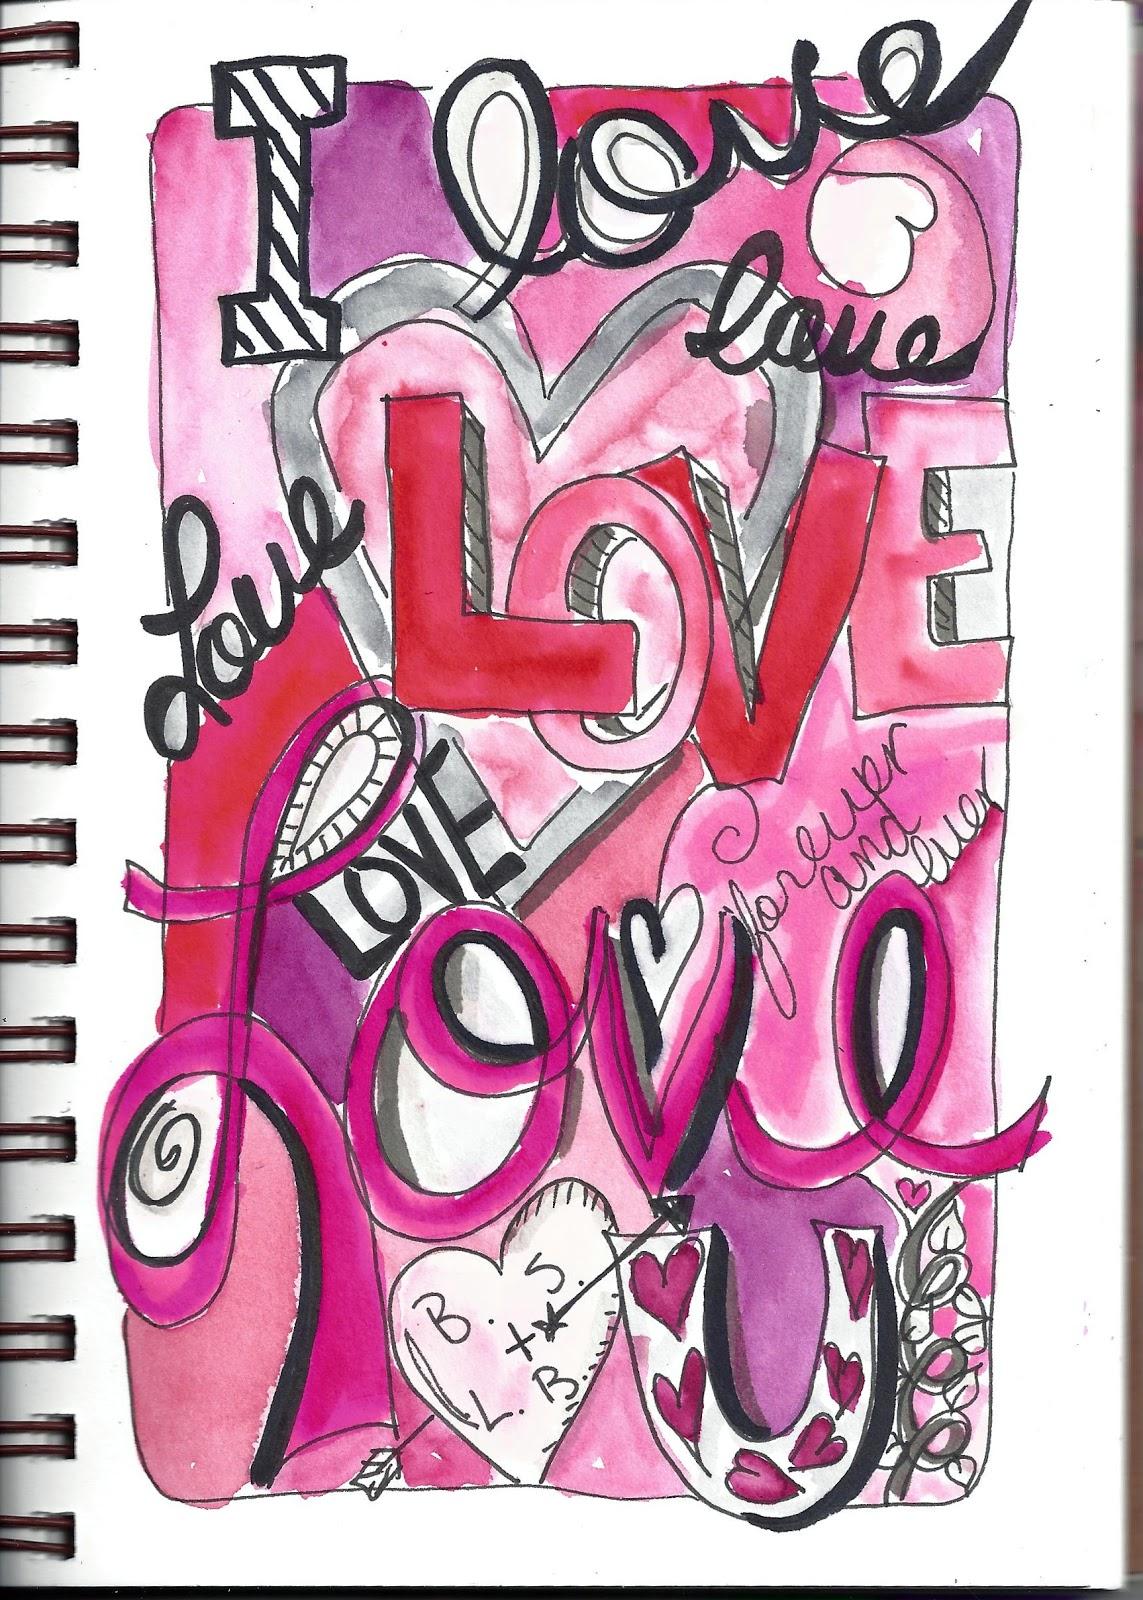 I love
love
LOVE
Love
LOVE
forever
and
ever
Love
B. S.
+
L. B.
U